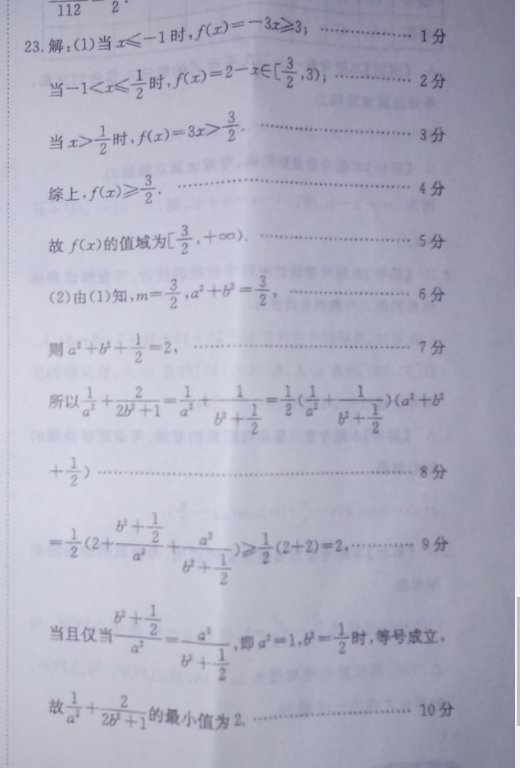 112 2.
23.解:(1)当 x≤-1 时,f(x)=-3x≥3; ……………… 1分
当-1<x≤1/2时,f(x)=2-x∈[3/2,3); ……………… 2分
当 x>1/2时,f(x)=3x>3/2. ……………… 3分
综上,f(x)≥3/2. ……………… 4分
故 f(x)的值域为[3/2,+∞). ……………… 5分
(2)由(1)知,m=3/2,a²+b²=3/2, ……………… 6分
则 a²+b²+1/2=2, ……………… 7分
所以1/a²+2/(2b²+1)=1/a²+1/(b²+1/2)=1/2(1/a²+1/(b²+1/2))(a²+b²
+1/2) ……………… 8分
=1/2(2+(b²+1/2)/a²+a²/(b²+1/2))≥1/2(2+2)=2, ………… 9分
当且仅当(b²+1/2)/a²=a²/(b²+1/2),即 a²=1,b²=1/2时,等号成立,
故1/a²+2/(2b²+1)的最小值为2. ……………… 10分